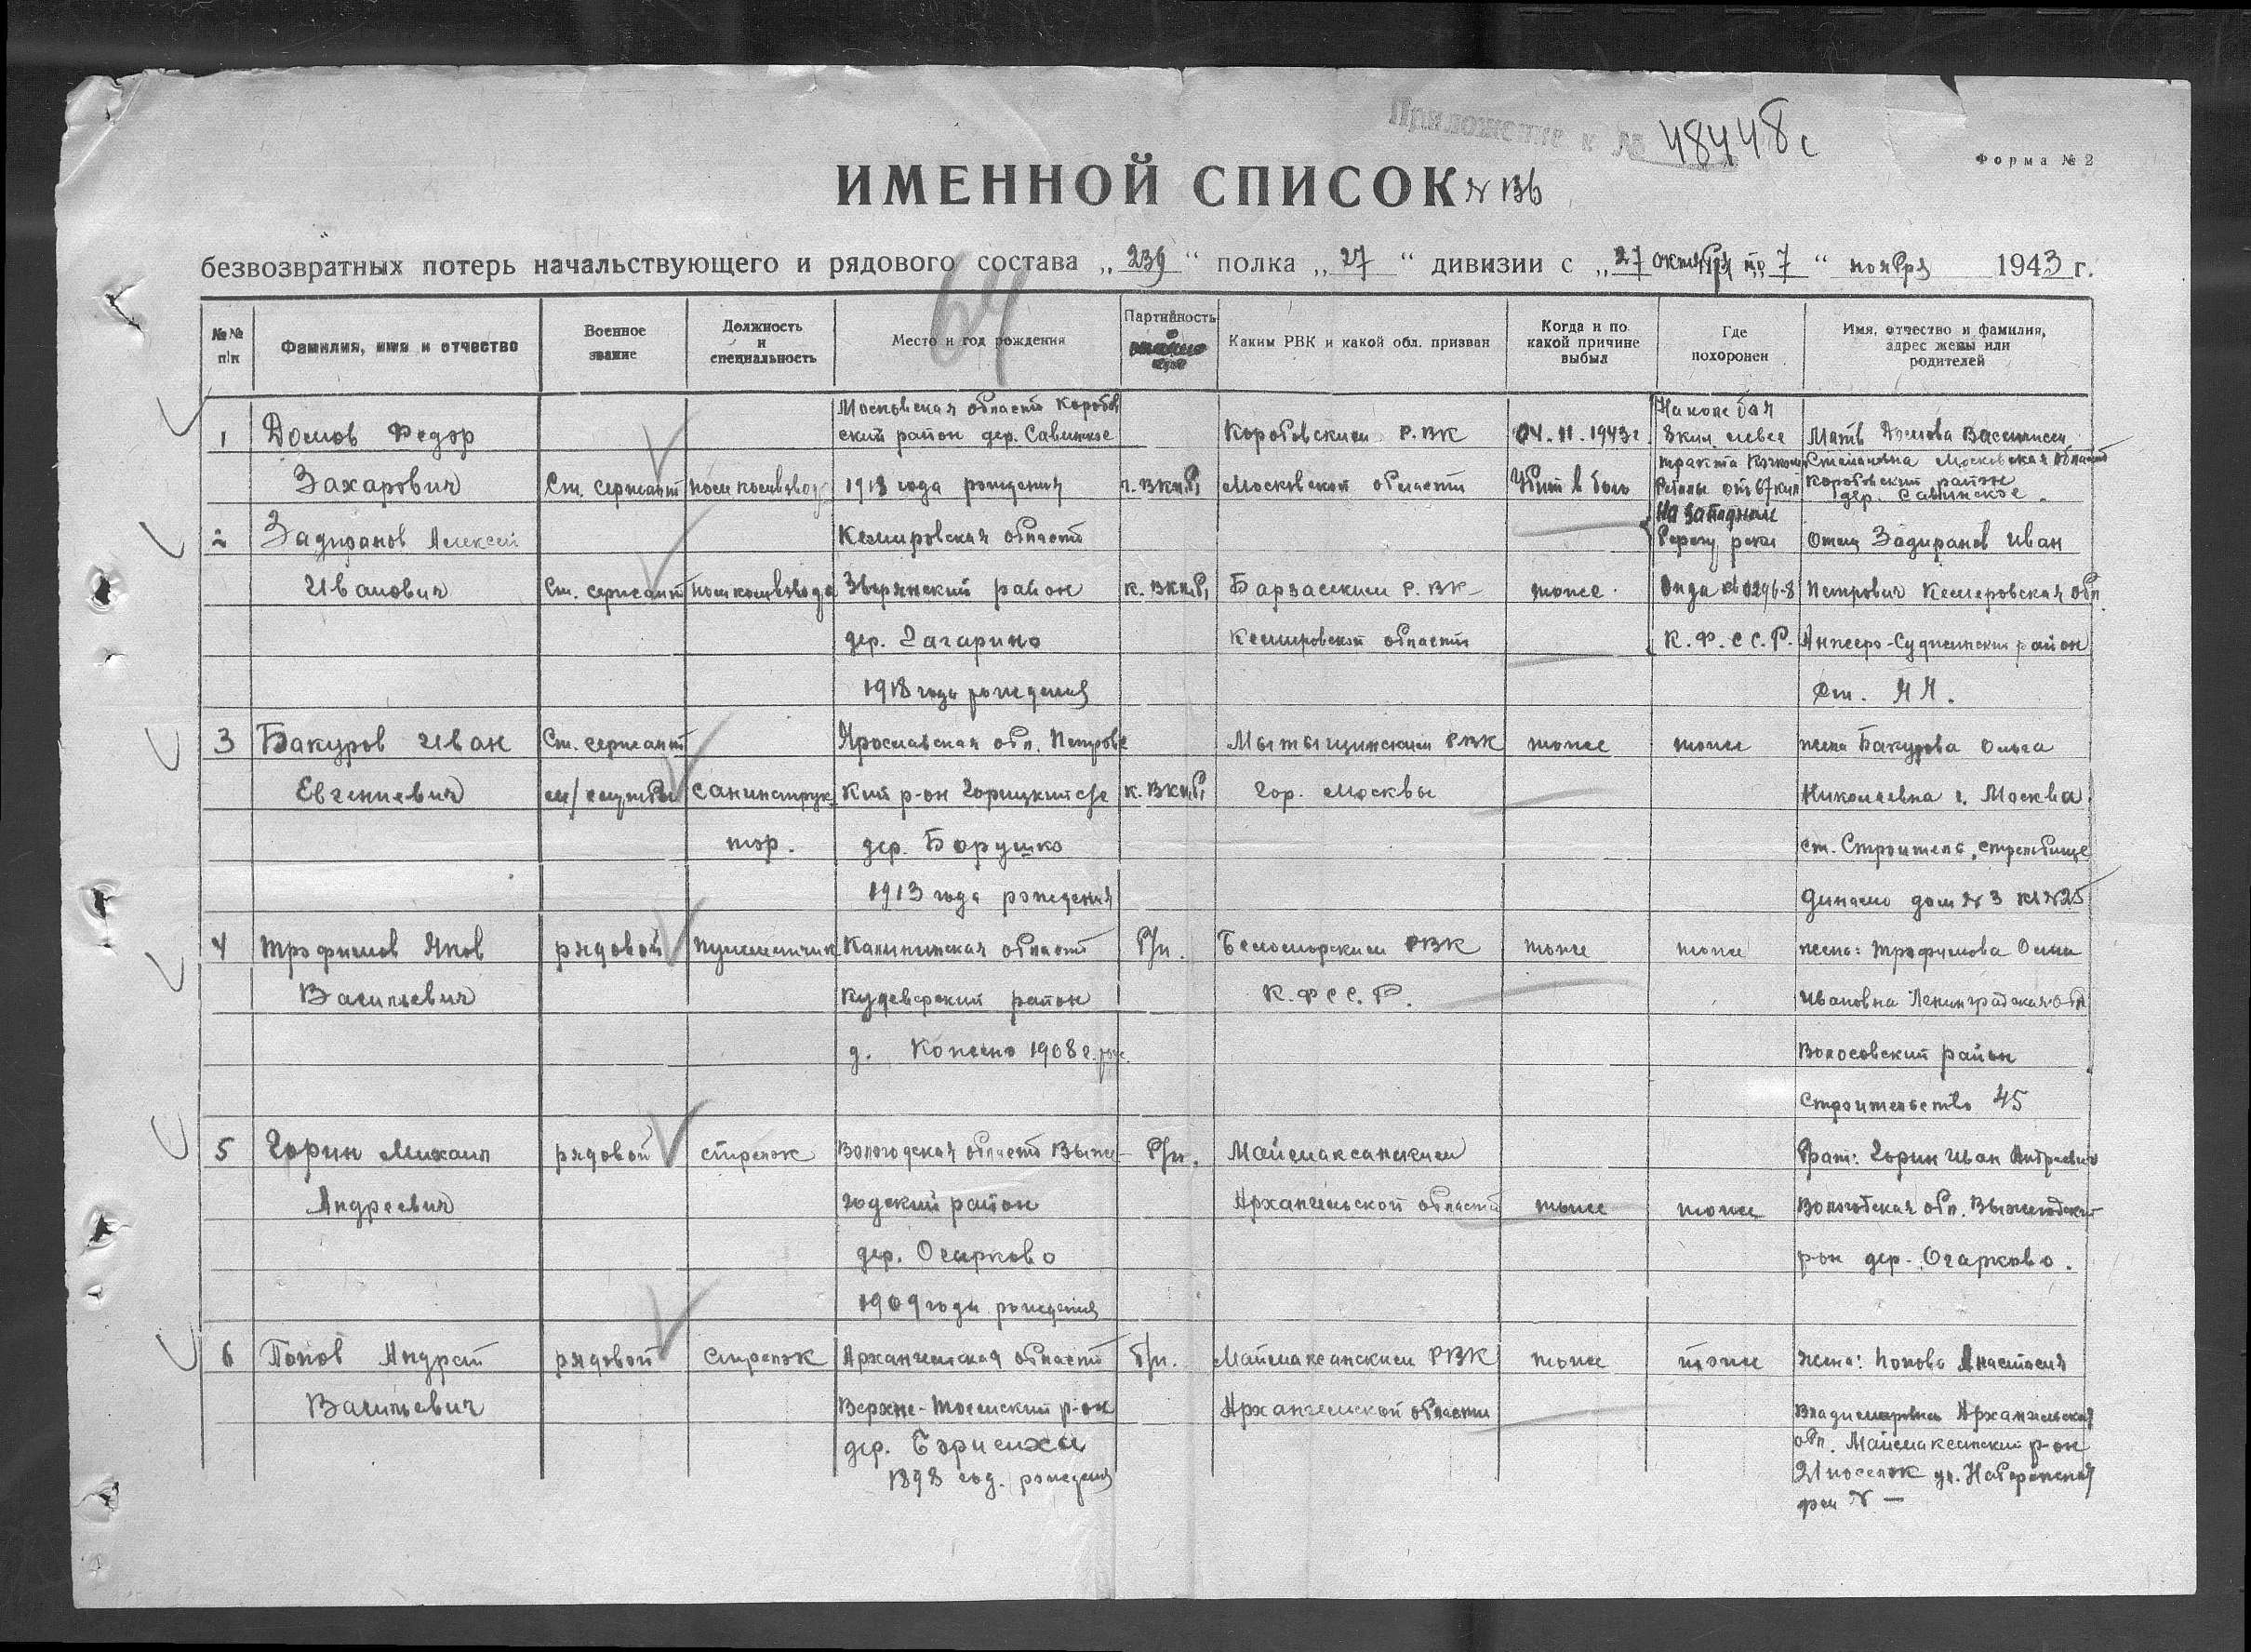 Приложение к № 48448с
Форма № 2
ИМЕННОЙ СПИСОК № 136
безвозвратных потерь начальствующего и рядового состава „239“ полка „27“ дивизии с „27 октября по 7“ ноября 1943 г.
64
№№ п/п
Фамилия, имя и отчество
Военное звание
Должность и специальность
Место и год рождения
Партийность и
Каким РВК и какой обл. призван
Когда и по какой причине выбыл
Где похоронен
Имя, отчество и фамилия, адрес жены или родителей
1
Домов Федор
Захарович
Ст. сержант
пом комвзвод
Московская область Коробов
ский район дер. Савинское
1918 года рождения
ч. ВКП.б,
Коробовским Р.ВК
Московской области
04.11.1943г
Убит в бою
На поле боя
8 кил. левее
тракта
67 кил
На западном
берегу реки
Онда кв 0296-8
К.Ф.С С.Р.
Мать Домова Василиса
Степановна Московская область
Коробовский район
дер. Савинское.
2
Задиранов Алексей
Иванович
Ст. сержант
пом комвзвода
Кемеровская область
Зырянский район
дер. Гагарино
1918 года рождения
к. ВКП.б,
Барзаским Р.ВК
Кемеровской области
тоже.
Отец Задиранов Иван
Петрович Кемеровская обл.
Анжеро-Судженский район
ст. ЯЯ.
3
Бакуров Иван
Евгениевич
Ст. сержант
м/службы
санинструк
тор.
Ярославская обл. Петровс
кий р-он Горицкий с/с
дер. Борушко
1913 года рождения
к. ВКП.б,
Мытыщинским РВК
гор. Москвы
тоже
тоже
жена Бакурова Ольга
Николаевна г. Москва
ст. Строитель, стрельбище
Динамо дом № 3 кв №25
4
Трофимов Яков
Васильевич
рядовой
пулеметчик
Калининская область
Кудеверский район
д. Копено 1908 г. рож.
б/п.
Беломорским РВК
К.ФСС.Р.
тоже
тоже
жена: Трофимова
Ивановна Ленинградская обл
Волосовский район
Строительство 45
5
Горин Михаил
Андреевич
рядовой
стрелок
Вологодская область Выже-
годский район
дер. Огарково
1909 года рождения
б/п.
Маймаксанским
Архангельской области
тоже
тоже
брат: Горин Иван Андреевич
Вологодская обл. Выжегодский
р-он дер. Огарково.
6
Попов Андрей
Васильевич
рядовой
стрелок
Архангельская область
Верхне-Тоемский р-он
дер. Борисиха
1898 год. рождения
б/п.
Маймаксанским РВК
Архангельской области
тоже
тоже
жена: Попова Анастасия
Владимировна Архангельская
обл. Маймаксанский р-он
21 поселок ул. Набережная
дом № —